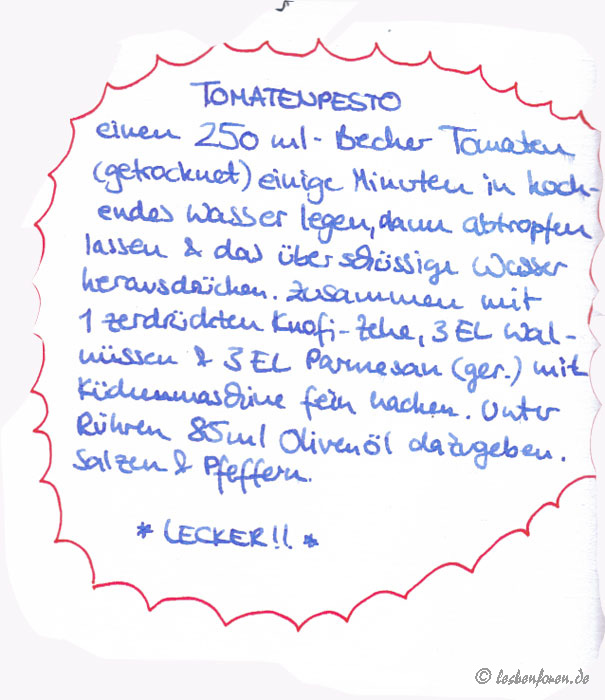 TOMATENPESTO
einen 250 ml - Becher Tomaten
(getrocknet) einige Minuten in koch-
endes Wasser legen, dann abtropfen
lassen & das überschüssige Wasser
herausdrücken. Zusammen mit
1 zerdrückten Knofi-Zehe, 3 EL Wal-
nüssen & 3 EL Parmesan (ger.) mit
Küchenmaschine fein hacken. Unter
Rühren 85ml Olivenöl dazugeben.
Salzen & Pfeffern.
* LECKER!! *
© lesbenforen.de